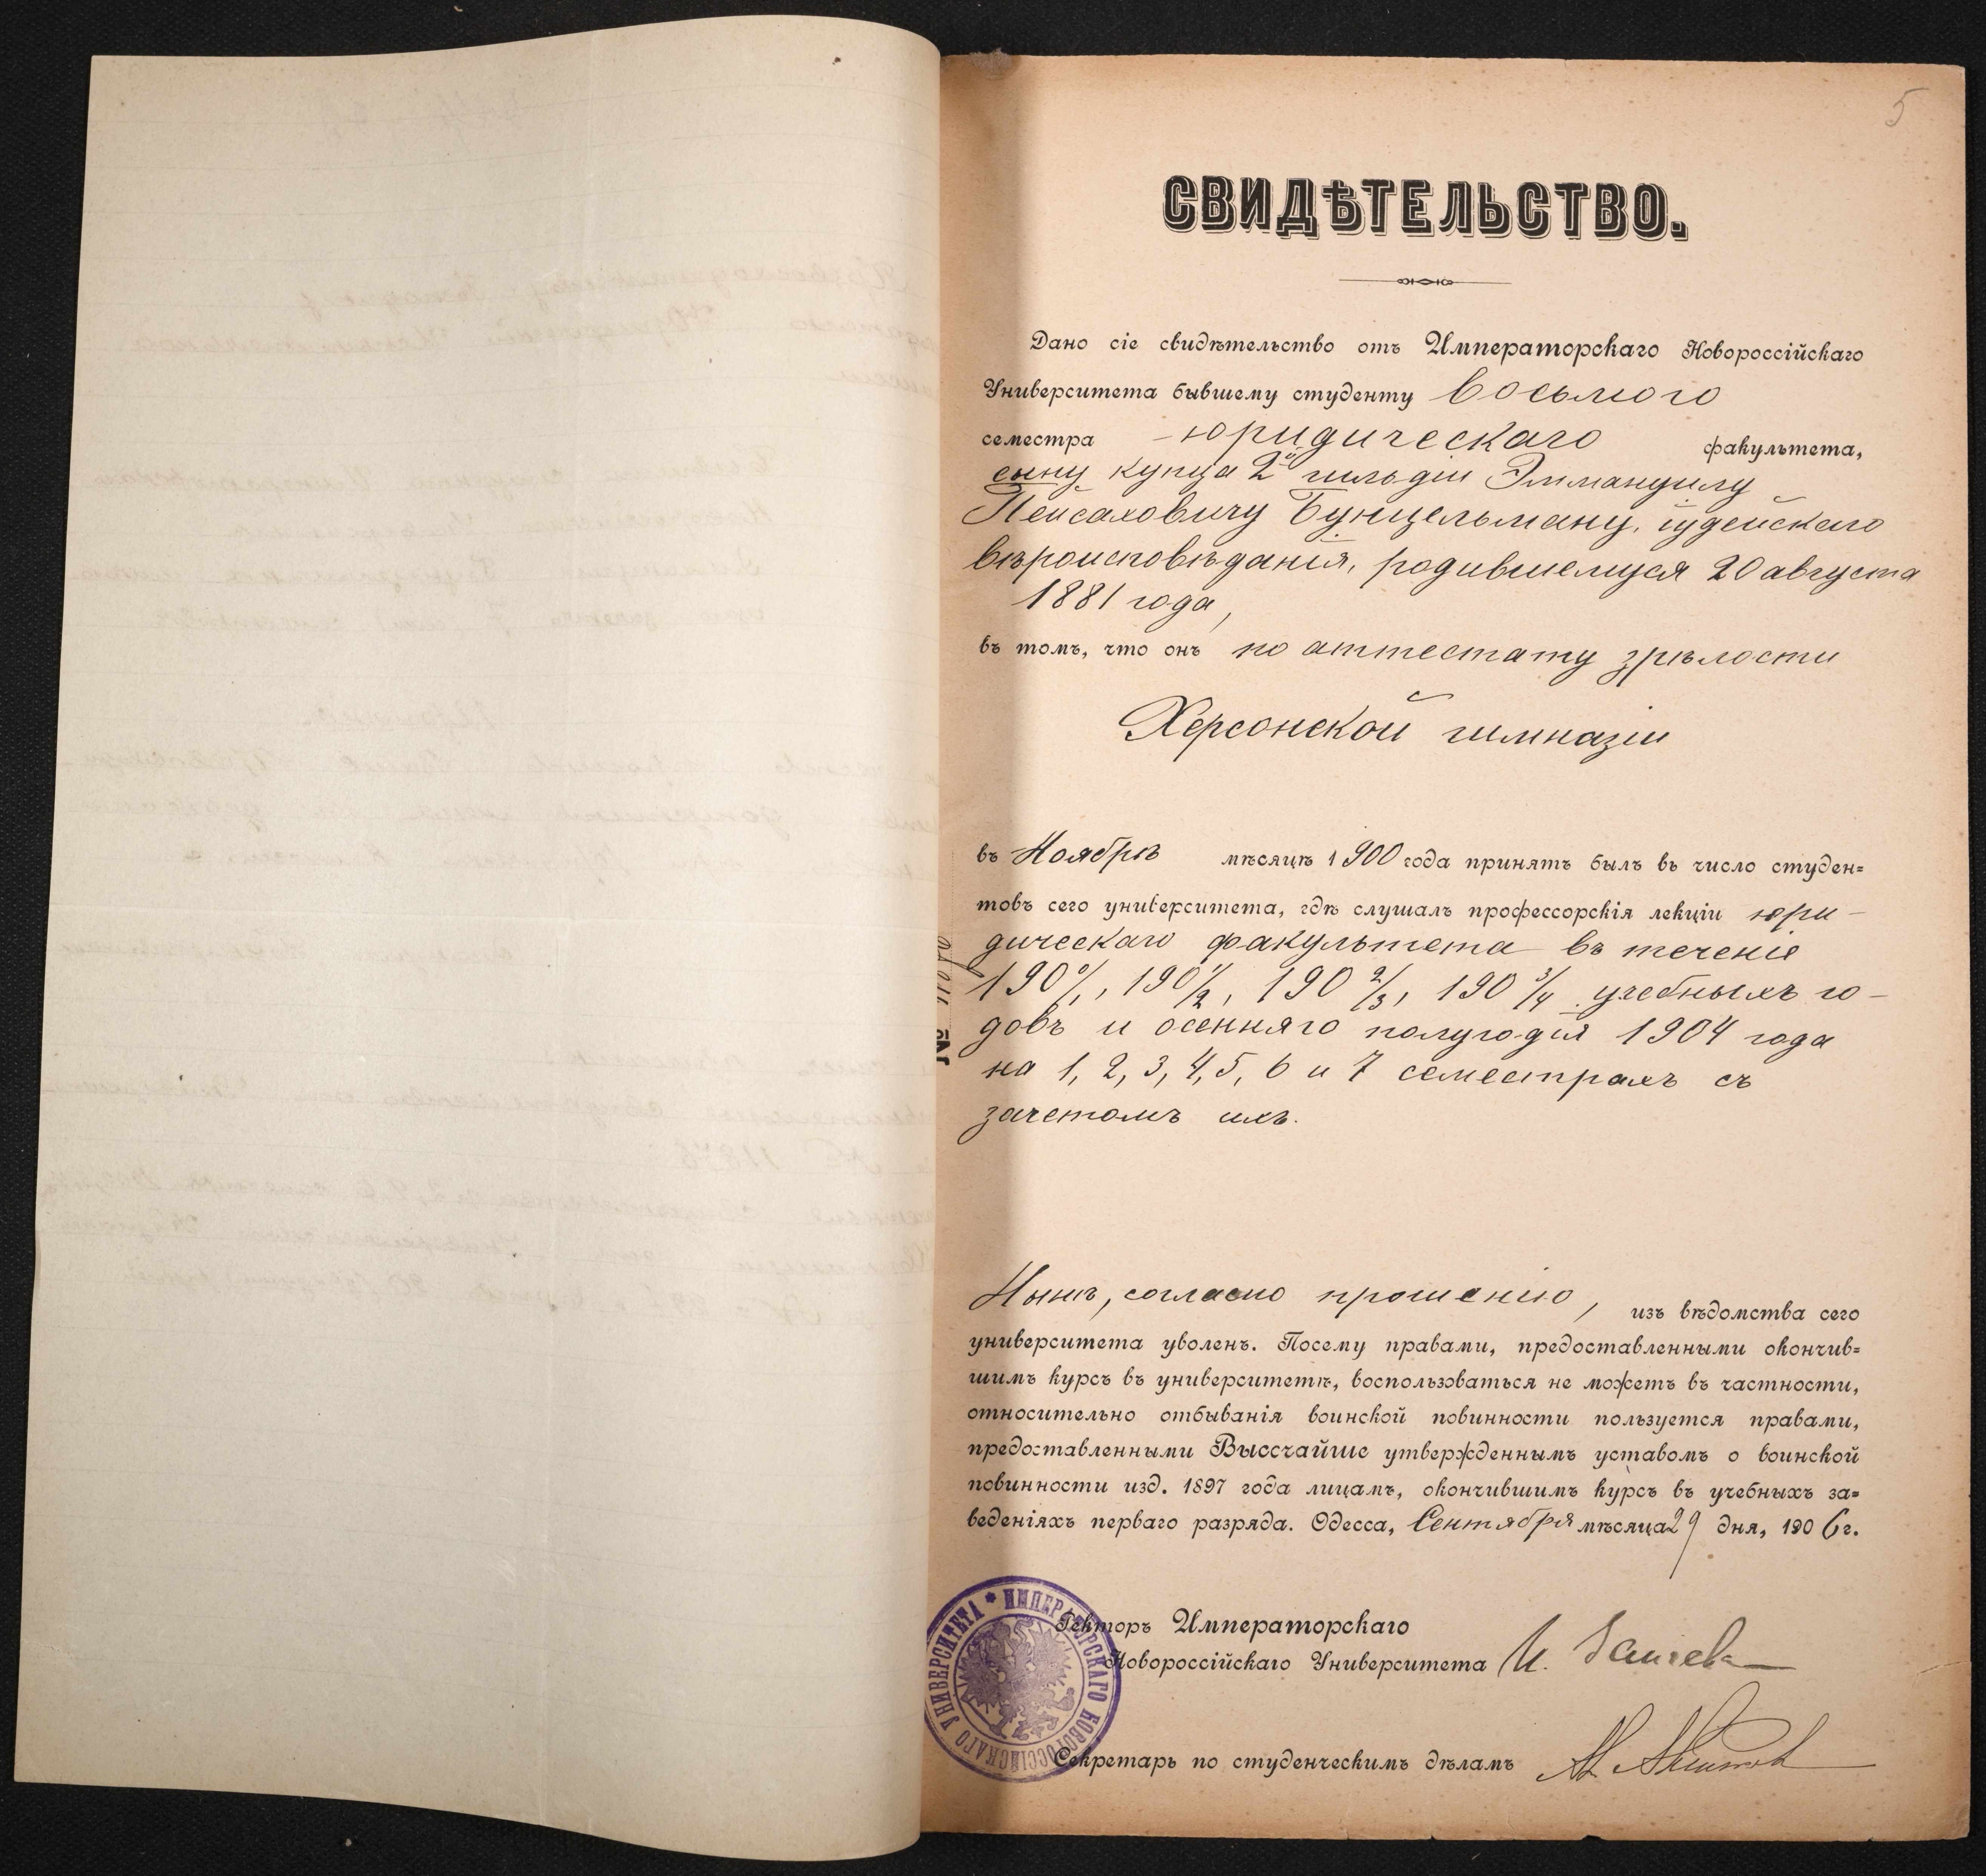 5
СВИДѢТЕЛЬСТВО.
Дано сіе свидѣтельство отъ Императорскаго Новороссійскаго
Университета бывшему студенту восьмого
семестра юридическаго факультета,
сыну купца 2й гильдіи Эммануилу
Пейсаховичу Бунцельману, іудейскаго
вѣроисповѣданія, родившемуся 20 августа
1881 года,
въ томъ, что онъ по аттестату зрѣлости
Херсонской гимназіи
въ Ноябрѣ мѣсяцѣ 1900 года принятъ былъ въ число студен=
товъ сего университета, гдѣ слушалъ профессорскія лекціи юри-
дическаго факультета въ теченіе
190 0/1, 190 1/2, 190 2/3, 190 3/4 учебныхъ го-
довъ и осенняго полугодія 1904 года
на 1, 2, 3, 4, 5, 6 и 7 семестрахъ съ
зачетомъ ихъ.
Нынѣ, согласно прошенію, изъ вѣдомства сего
университета уволенъ. Посему правами, предоставленными окончив=
шимъ курсъ въ университетѣ, воспользоваться не можетъ въ частности,
относительно отбыванія воинской повинности пользуется правами,
предоставленными Высочайше утвержденнымъ уставомъ о воинской
повинности изд. 1897 года лицамъ, окончившимъ курсъ въ учебныхъ за=
веденіяхъ перваго разряда. Одесса, Сентября мѣсяца 29 дня, 1906 г.
Ректоръ Императорскаго
Новороссійскаго Университета И.
Секретарь по студенческимъ дѣламъ
* ИМПЕРАТОРСКАГО НОВОРОССІЙСКАГО УНИВЕРСИТЕТА